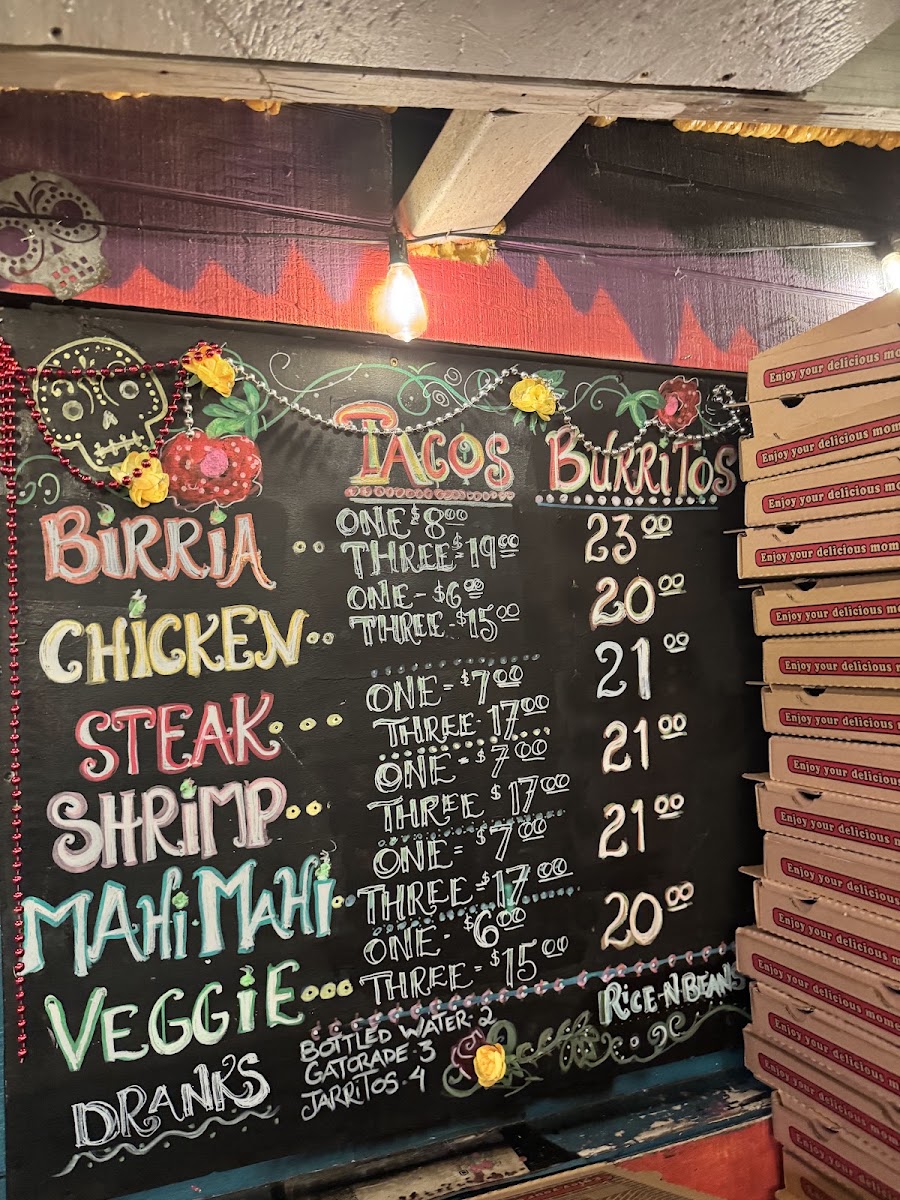 TACOS BURRITOS
BIRRIA ONE $8.00 23.00
THREE $19.00
CHICKEN ONE - $6.00 20.00
THREE - $15.00
STEAK ONE = $7.00 21.00
THREE - 17.00
SHRIMP ONE - $7.00 21.00
THREE $17.00
MAHI MAHI ONE = $7.00 21.00
THREE = $17.00
VEGGIE ONE - $6.00 20.00
THREE = $15.00
RICE-N-BEANS
DRANKS BOTTLED WATER - 2
GATORADE - 3
JARRITOS - 4
Enjoy your delicious mom
Enjoy your delicious mom
Enjoy your delicious mom
Enjoy your delicious mom
Enjoy your delicious mom
Enjoy your delicious
Enjoy your delicious
Enjoy your delicious
Enjoy your delicious mom
Enjoy your delicious mom
Enjoy your delicious mom
Enjoy your delicious mome
Enjoy your delicious mom
Enjoy your delicious mom
Enjoy your delicious